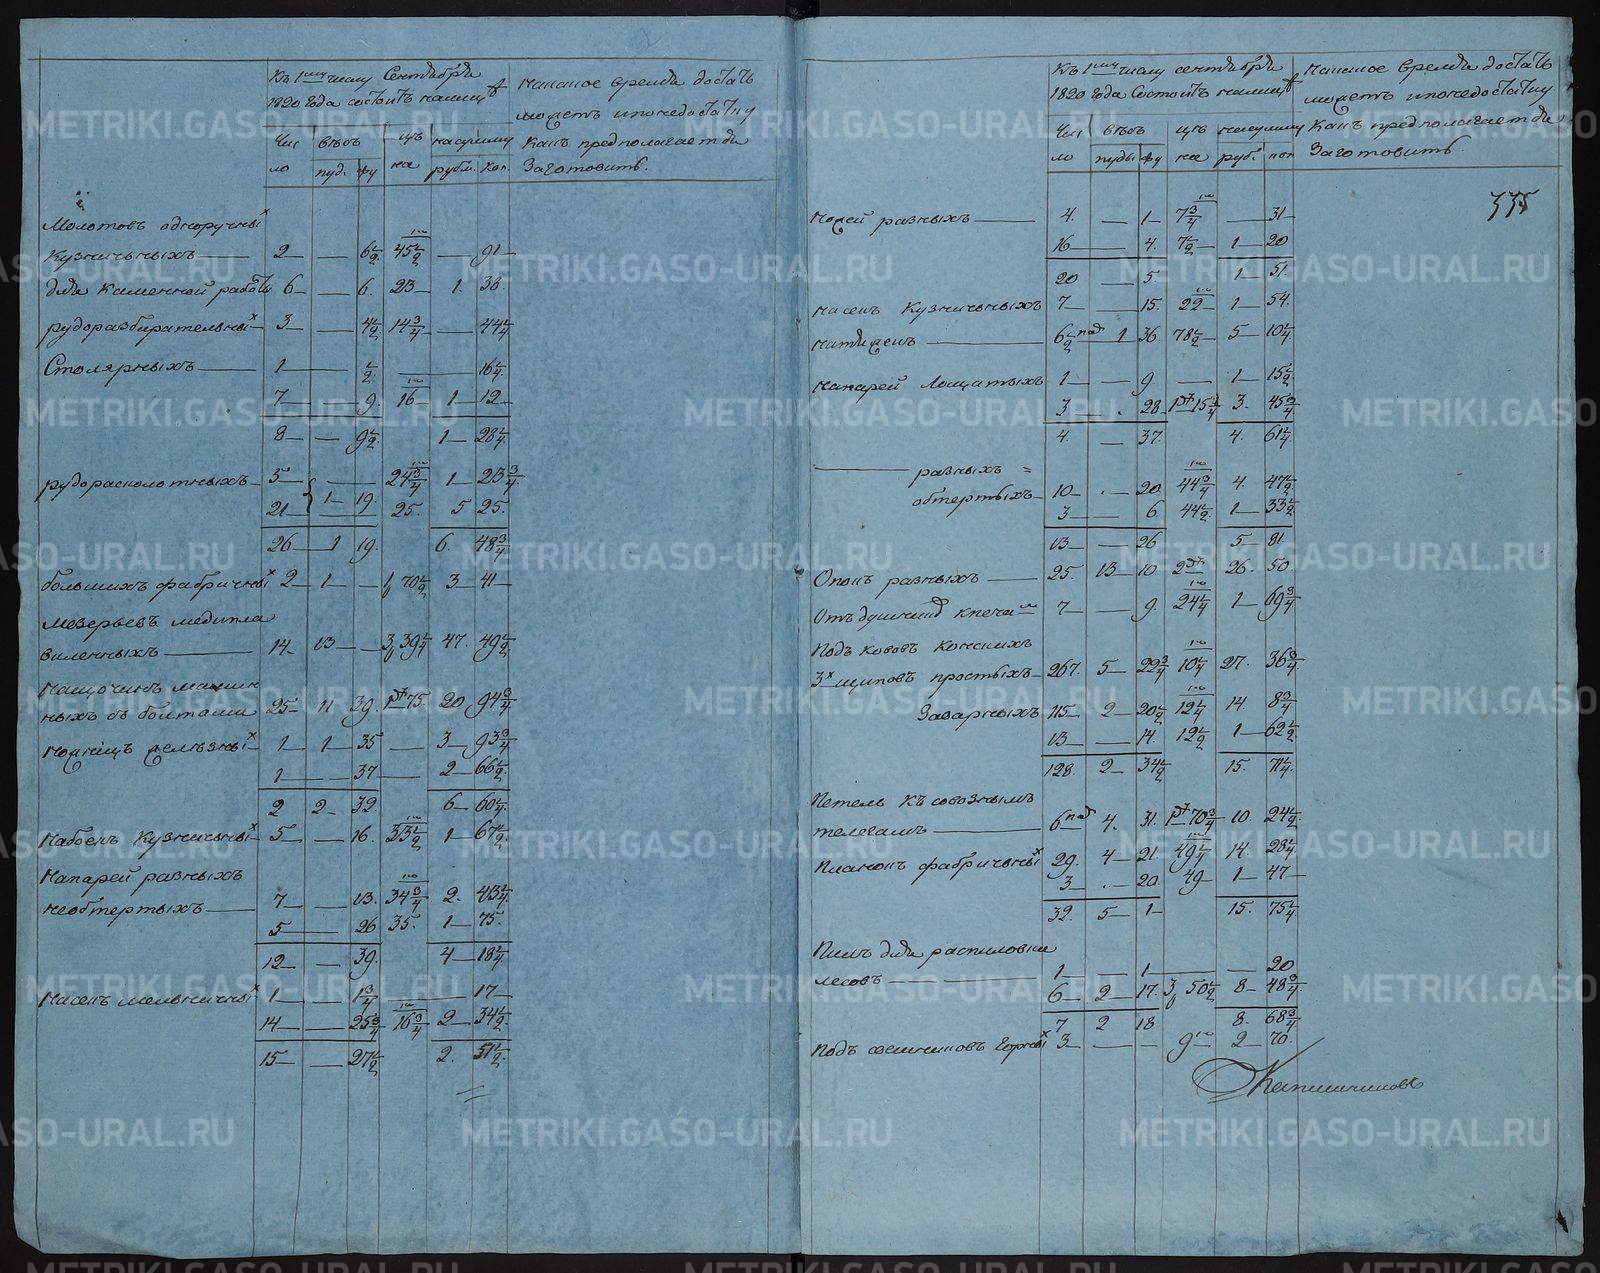 Къ 1му числу Сентября
1820 года состоитъ налицо
На какое время достать
можетъ и по недостатку
какъ предполагается
заготовить.
Чис
ло
вѣсъ
пуд. фу
цѣ
на
на сумму
рубл. коп.
Молотовъ одноручных
кузничныхъ 2 — — 6½ 45½ — 91
для каменной работы 6 — 6. 23 1. 38
рудоразбирательных 3 — 4½ 14¾ — 44¼
Столярныхъ 1 — ½ — 16¼
7 — 9. 16 1 12
8 — 9½ 1 28¼
рудорасколотныхъ 5 — 24¾ 1 23¾
21 1 19. 25. 5 25.
26 1 19. 6. 48¾
большихъ фабричных 2 1 — 1, 70½ 3 41
14 13 — 3, 39¼ 47. 49½
виленныхъ
ныхъ съ болтами 25 11 39. 1р 75. 20 94¾
1 1 35 — 3 93¾
1 — 37 — 2 66½
2 2 32. 6 60¼
кузничных 5 — 16. 33½ 1 67½
Напарей разныхъ
необтертыхъ 7 — 13. 34¾ 2. 43¼
5 — 26 35. 1 75.
12 — 39. 4 18¼
Насекъ мельничных 1 — 1¾ — 17
14 — 25¾ 16¾ 2 34½
15 — 27½ 2. 51½
Къ 1му числу сентября
1820 года Состоитъ налицо
На какое время достать
можетъ и по недостатку
Какъ предполагается
Заготовить.
Чис
ло
вѣсъ
пуды фу
цѣ
на
на сумму
рубл. коп
335
Ножей разныхъ 4. — 1 7¾ — 31
16 — 4. 7½ 1 20
20 — 5. 1 51.
Насекъ Кузничныхъ 7 — 15. 22 1 54.
6½ 1 36. 78½ 5 10¼
Напарей Лощатыхъ 1 — 9 — 1 15½
3 — 28. 1р 15¼ 3. 45¾
4. — 37. 4. 61¼
разныхъ
обтертыхъ 10 — 20. 44¾ 4. 47½
3 — 6. 44½ 1 33½
13 — 26 5 81.
Опокъ разныхъ 25. 13 10 2р 26. 50
7 — 9. 24¼ 1 69¾
Подъ кововъ Конскихъ
3х шиповъ простыхъ 267. 5 22¾ 10¼ 27. 36¾
Заварныхъ 115 2 20½ 12¼ 14. 8¾
13 — 14. 12½ 1 62½
128. 2 34½ 15. 71¼
Петель къ
телегамъ 6 4. 31. 1р 70¾ 10. 24½
Планокъ фабричных 29. 4 21. 49¼ 14. 28¼
3 — 20. 49 1 47
32. 5 1 15. 75¼
Пилъ для распиловки
лесовъ 1 — 1 — 20
6 2 17. 3, 50½ 8 48¾
7 2 18 8. 68¾
Подъ горных 3 — — 9 2 70.